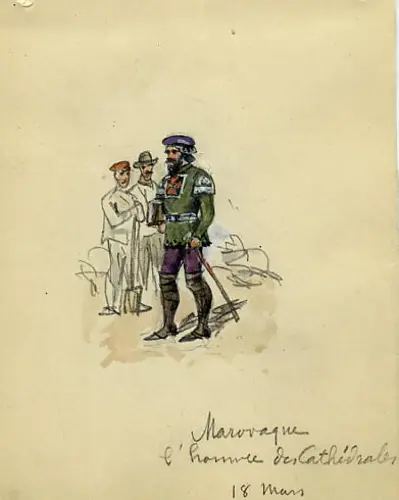 Marovaque
l'homme des Cathédrales
18 Mars